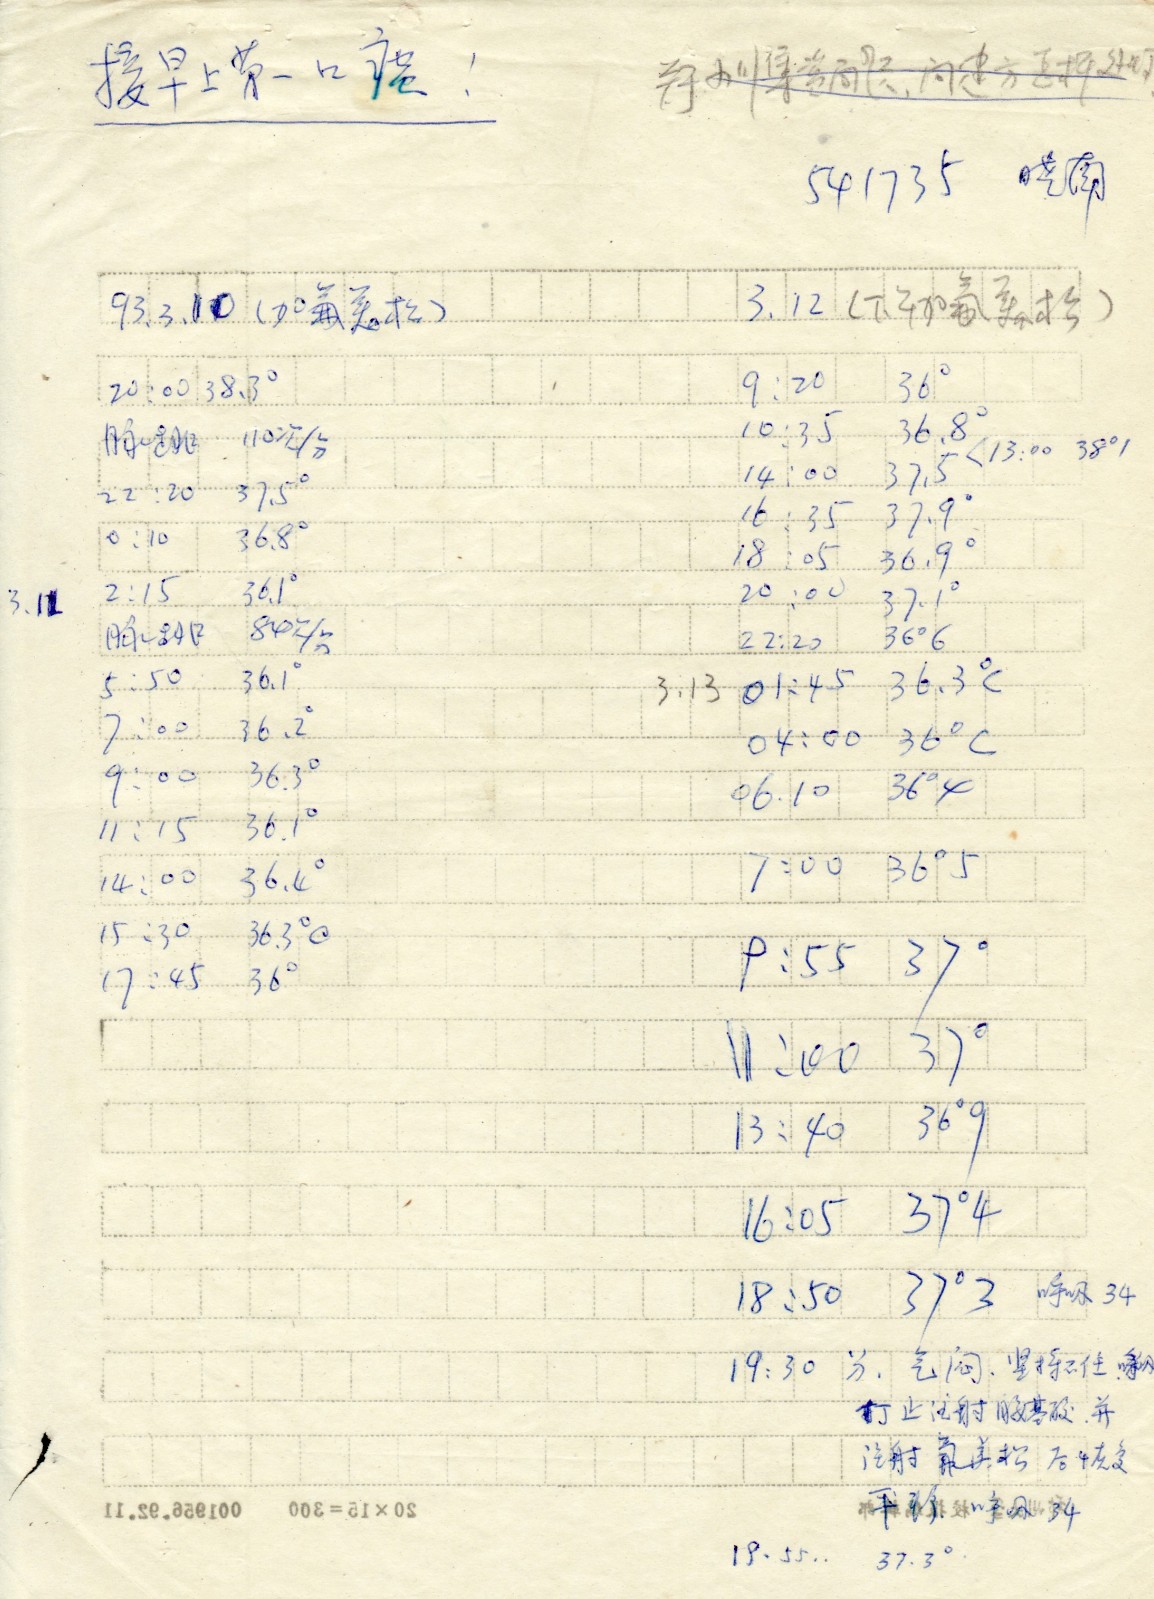 接早上第一口痰！
541735 晓南
93.3.10（加氟美松）
20:00 38.3°
110次/分
22:20 37.5°
0:10 36.8°
3.11 2:15 36.1°
84次/分
5:50 36.1°
7:00 36.2°
9:00 36.3°
11:15 36.1°
14:00 36.4°
15:30 36.3°C
17:45 36°
3.12（下午加氟美松）
9:20 36°
10:35 36.8°
<13:00 38°1
14:00 37.5
16:35 37.9°
18:05 36.9°
20:00 37.1°
22:20 36°6
3.13 01:45 36.3°C
04:00 36°C
06.10 36°4
7:00 36°5
9:55 37°
11:00 37°
13:40 36°9
16:05 37°4
18:50 37°3 呼吸34
19:30分、气闷、坚持不住
停止注射胺基酸、并
注射氟美松后恢复
呼吸34
19.55.. 37.3°
20×15=300 001956.92.11